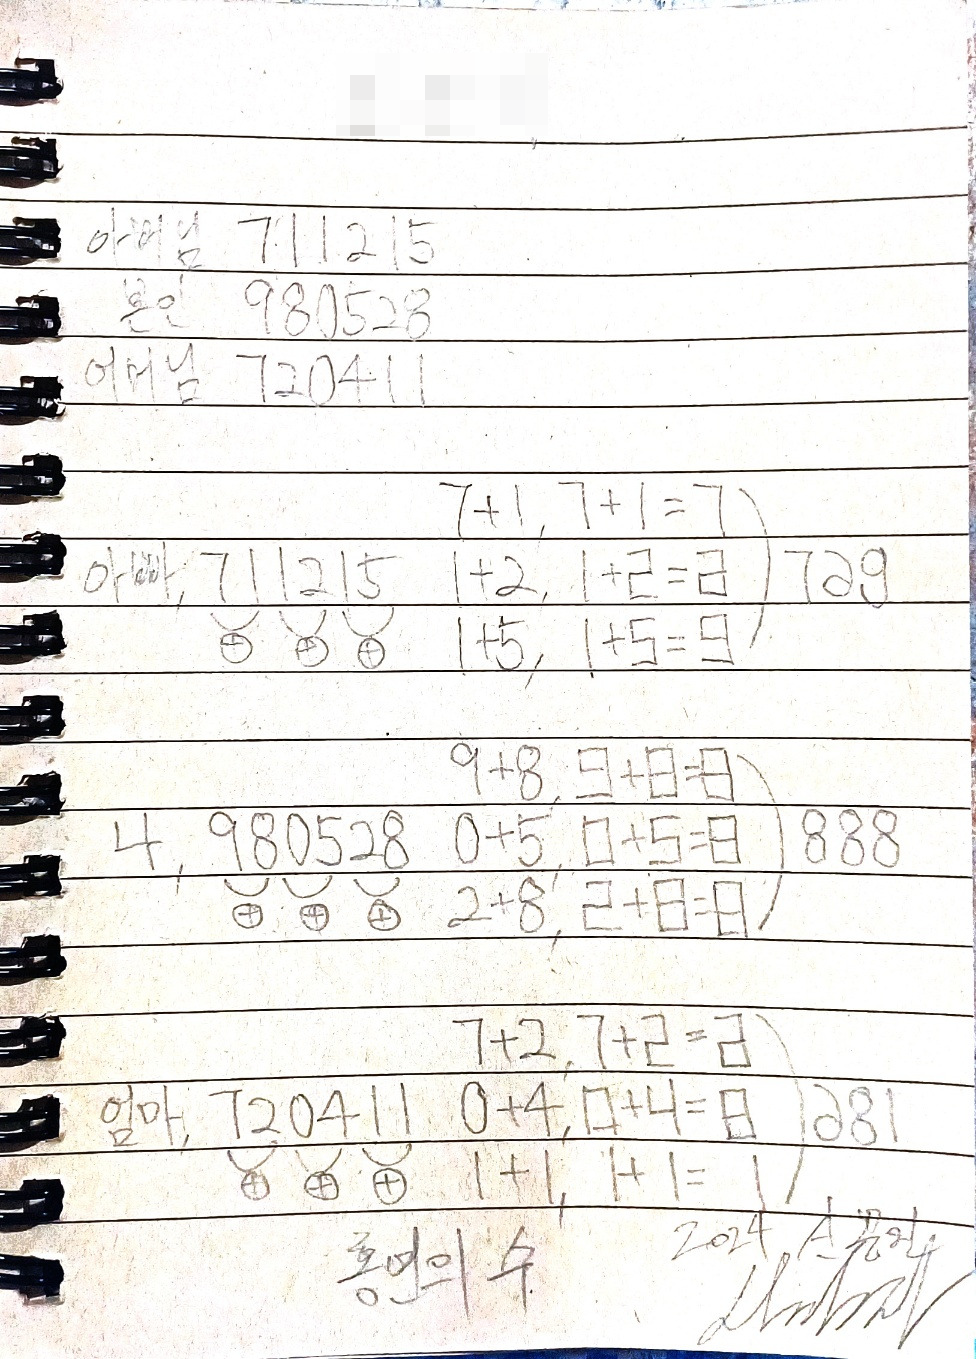 아버님 711215
본인 980528
어머님 720411
7+1, 7+1=7
아빠, 711215 1+2, 1+2=2 ) 729
⊕ ⊕ ⊕ 1+5, 1+5=9
9+8, 9+8=8
나, 980528 0+5, 0+5=8 ) 888
⊕ ⊕ ⊕ 2+8, 2+8=8
7+2, 7+2=2
엄마, 720411 0+4, 0+4=8 ) 281
⊕ ⊕ ⊕ 1+1, 1+1=1
홍연의 수 2024,